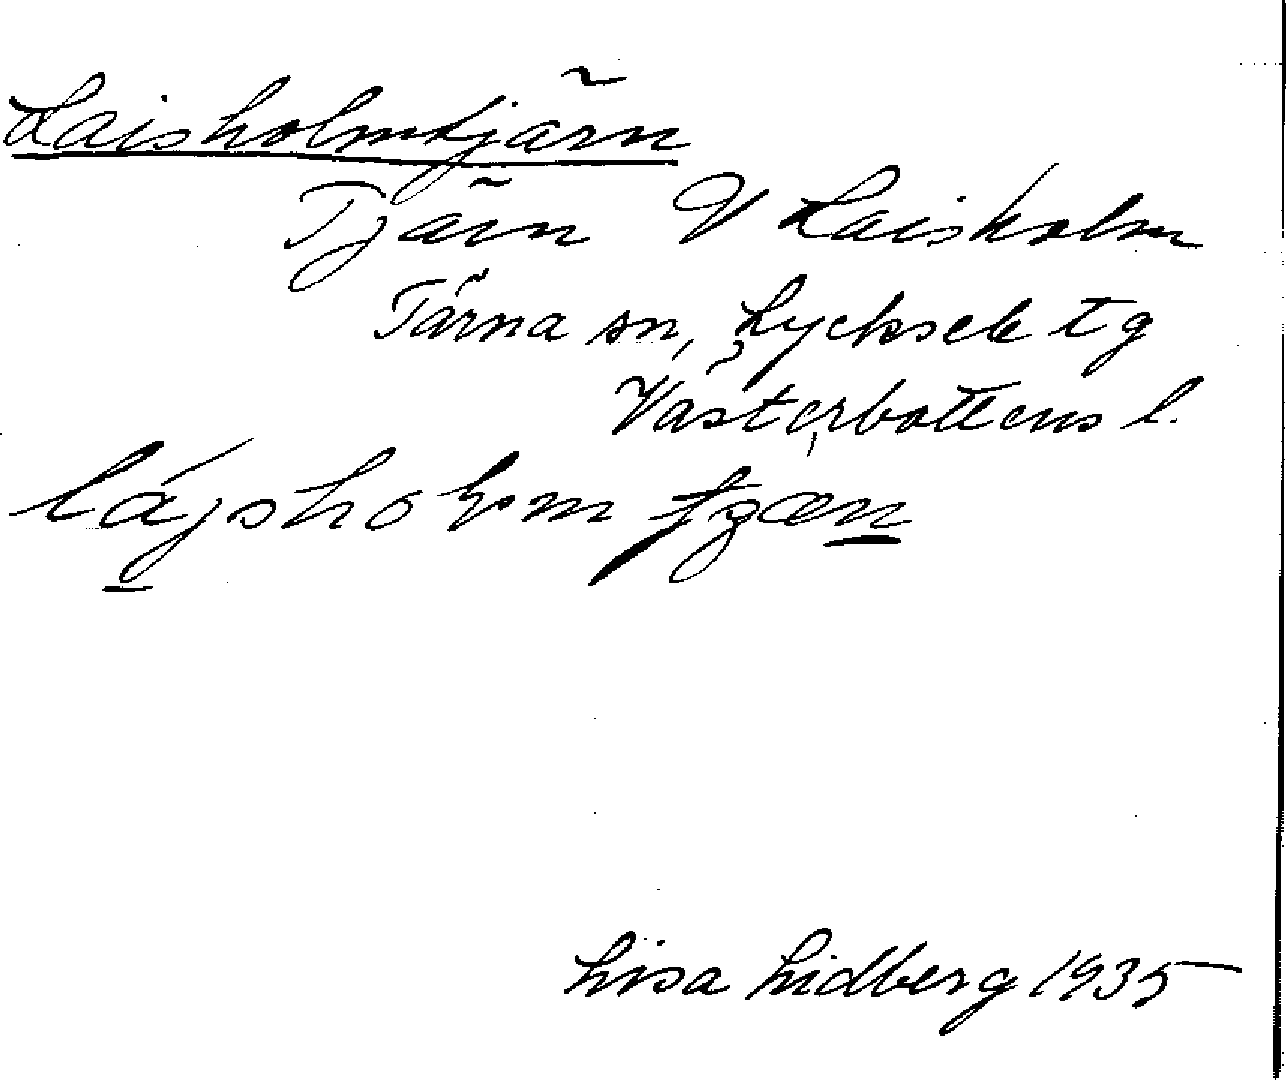 Laisholmtjärn
Tjärn V Laisholm
Tärna sn, Lycksele tg
Västerbottens l.
lájsholm
Lisa Lidberg 1935